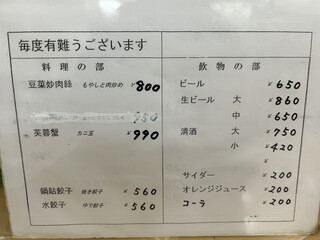 毎度有難うございます
料理の部
豆菜炒肉絲 もやしと肉炒め ¥800
950
芙蓉蟹 カニ玉 ¥990
鍋貼餃子 焼き餃子 ¥560
水餃子 ゆで餃子 ¥560
飲物の部
ビール ¥650
生ビール 大 ¥860
中 ¥650
清酒 大 ¥750
小 ¥420
サイダー ¥200
オレンジジュース ¥200
コーラ ¥200